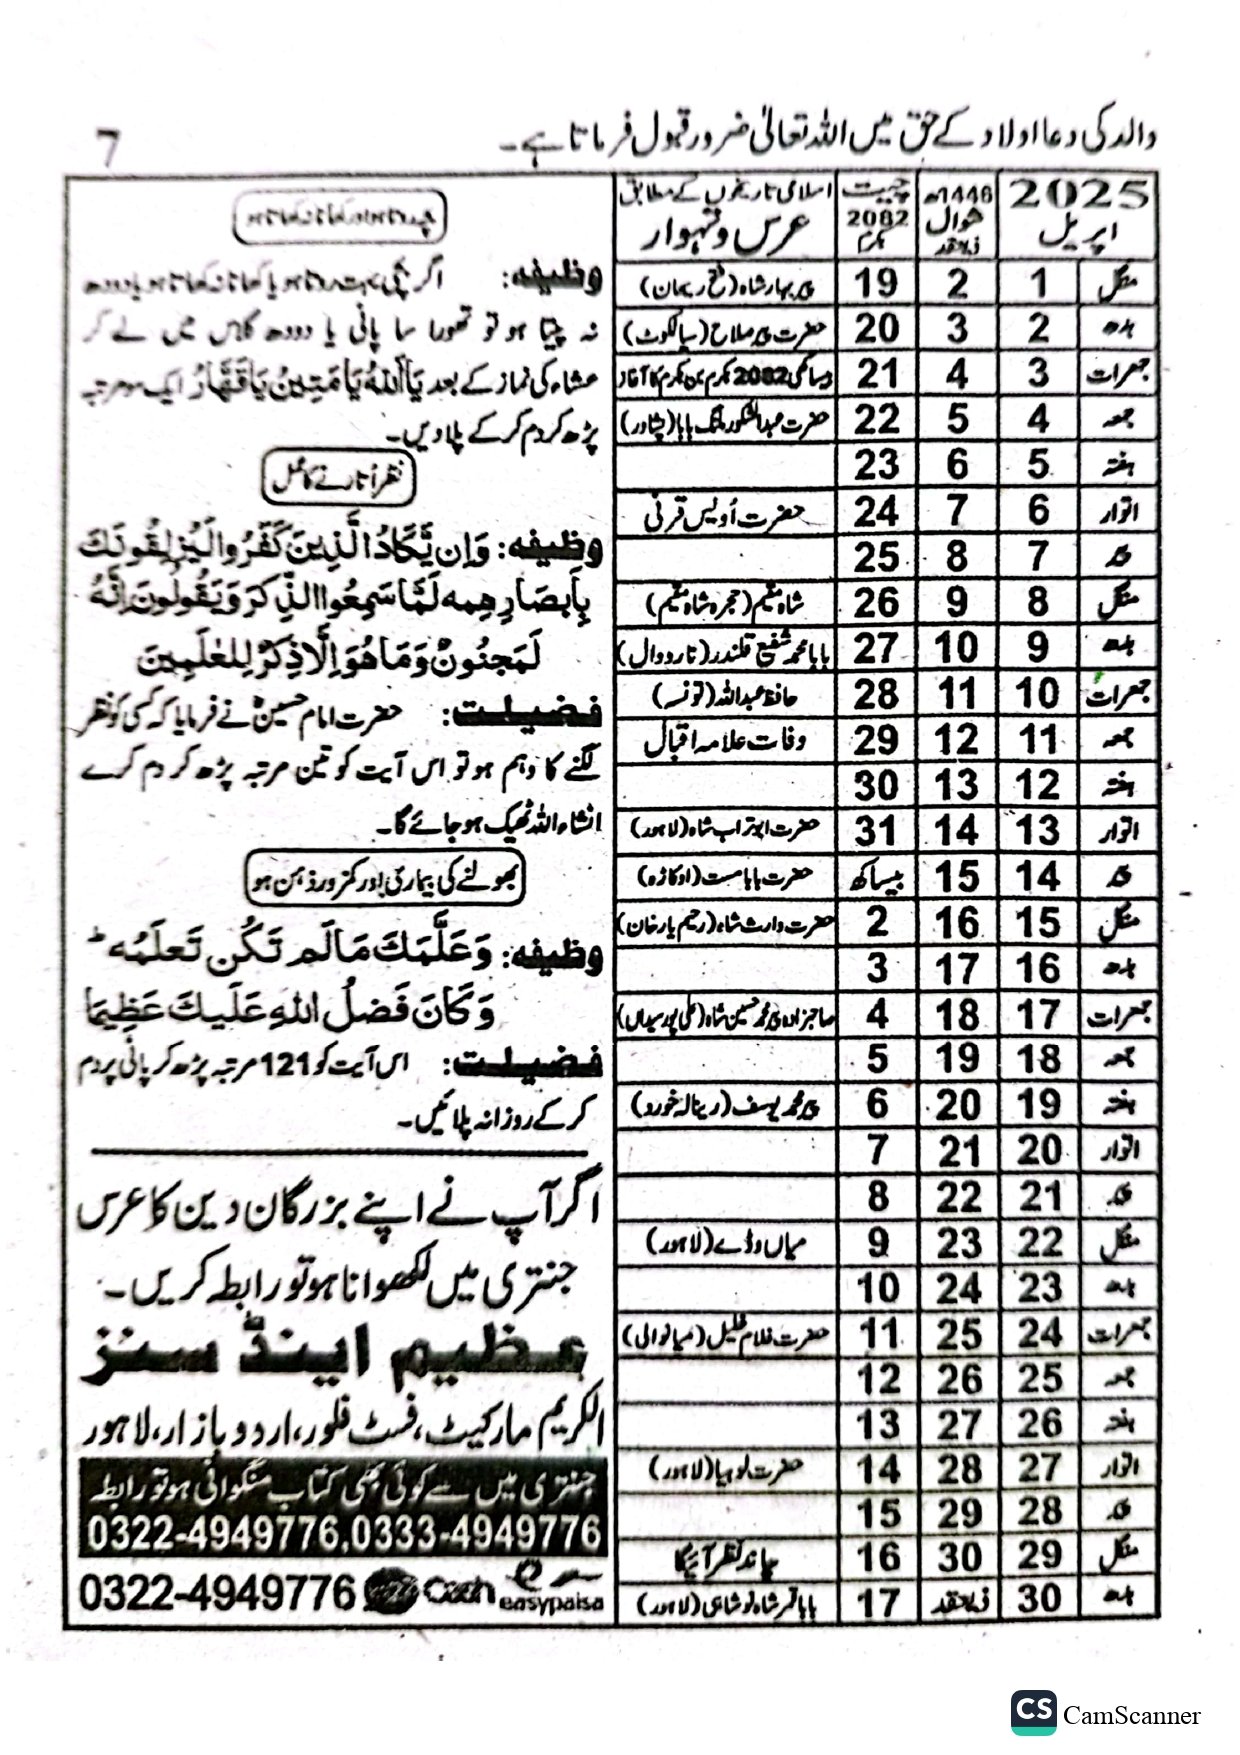 7
والد کی دعا اولاد کے حق میں اللہ تعالیٰ ضرور قبول فرماتا ہے۔
2025 اپریل | 1446ھ شوال ذیلعقد | چیت 2082 بکرم | اسلامی تاریخوں کے مطابق عرس و تہوار
منگل 1 2 19 پیر بہار شاہ
بدھ 2 3 20 حضرت پیر ملاح (سیالکوٹ)
جمعرات 3 4 21 2082 بکرم کا آغاز
جمعہ 4 5 22 حضرت عبدالشکور ملنگ بابا (پشاور)
ہفتہ 5 6 23
اتوار 6 7 24 حضرت اُویس قرنی
پیر 7 8 25
منگل 8 9 26 شاہ مقیم (حجرہ شاہ مقیم)
بدھ 9 10 27 بابا محمد شفیع قلندر (نارووال)
جمعرات 10 11 28 حافظ عبداللہ (تونسہ)
جمعہ 11 12 29 وفات علامہ اقبال
ہفتہ 12 13 30
اتوار 13 14 31 حضرت ابوتراب شاہ (لاہور)
پیر 14 15 بیساکھ حضرت بابا مست (اوکاڑہ)
منگل 15 16 2 حضرت وارث شاہ (رحیم یار خان)
بدھ 16 17 3
جمعرات 17 18 4 صاحبزادہ پیر محمد حسین شاہ (علی پور سیداں)
جمعہ 18 19 5
ہفتہ 19 20 6 پیر محمد یوسف (رینالہ خورد)
اتوار 20 21 7
پیر 21 22 8
منگل 22 23 9 میاں وڈے (لاہور)
بدھ 23 24 10
جمعرات 24 25 11 حضرت غلام خلیل (میانوالی)
جمعہ 25 26 12
ہفتہ 26 27 13
اتوار 27 28 14 حضرت لوہیا (لاہور)
پیر 28 29 15
منگل 29 30 16 چاند نظر آئیگا
بدھ 30 ذیلعقد 17 بابا قمر شاہ نوشاہی (لاہور)
بچہ روتا ہو اور کھانا نہ کھاتا ہو
وظیفہ: اگر بچہ بہت روتا ہو یا کھانا نہ کھاتا ہو یا دودھ
نہ پیتا ہو تو تھوڑا سا پانی یا دودھ گلاس میں لے کر
عشاء کی نماز کے بعد یَا اَللہُ یَا مَتِینُ یَا قَھَّارُ ایک سو مرتبہ
پڑھ کر دم کر کے پلاویں۔
نظر اُتارنے کا عمل
وظیفہ: وَاِن یَّکَادُ الَّذِینَ کَفَرُوا لَیُزلِقُونَكَ
بِاَبصَارِھِمہ لَمَّا سَمِعُوا الذِّکرَ وَیَقُولُونَ اِنَّهُ
لَمَجنُونٌ وَمَا ھُوَ اِلَّا ذِکرٌ لِّلعٰلَمِینَ
فضیلت: حضرت امام حسینؓ نے فرمایا کہ کسی کو نظر
لگنے کا وہم ہو تو اس آیت کو تین مرتبہ پڑھ کر دم کرے
انشاء اللہ ٹھیک ہو جائے گا۔
بھولنے کی بیماری اور کمزور ذہن ہو
وظیفہ: وَعَلَّمَكَ مَا لَم تَکُن تَعلَمُه ط
وَکَانَ فَضلُ اللهِ عَلَیكَ عَظِیمًا
فضیلت: اس آیت کو 121 مرتبہ پڑھ کر پانی پر دم
کر کے روزانہ پلائیں۔
اگر آپ نے اپنے بزرگان دین کا عرس
جنتری میں لکھوانا ہو تو رابطہ کریں۔
عظیم اینڈ سنز
الکریم مارکیٹ، فسٹ فلور، اردو بازار، لاہور
جنتری میں سے کوئی بھی کتاب منگوانی ہو تو رابطہ
0322-4949776,0333-4949776
0322-4949776 Cash easypaisa
CS CamScanner